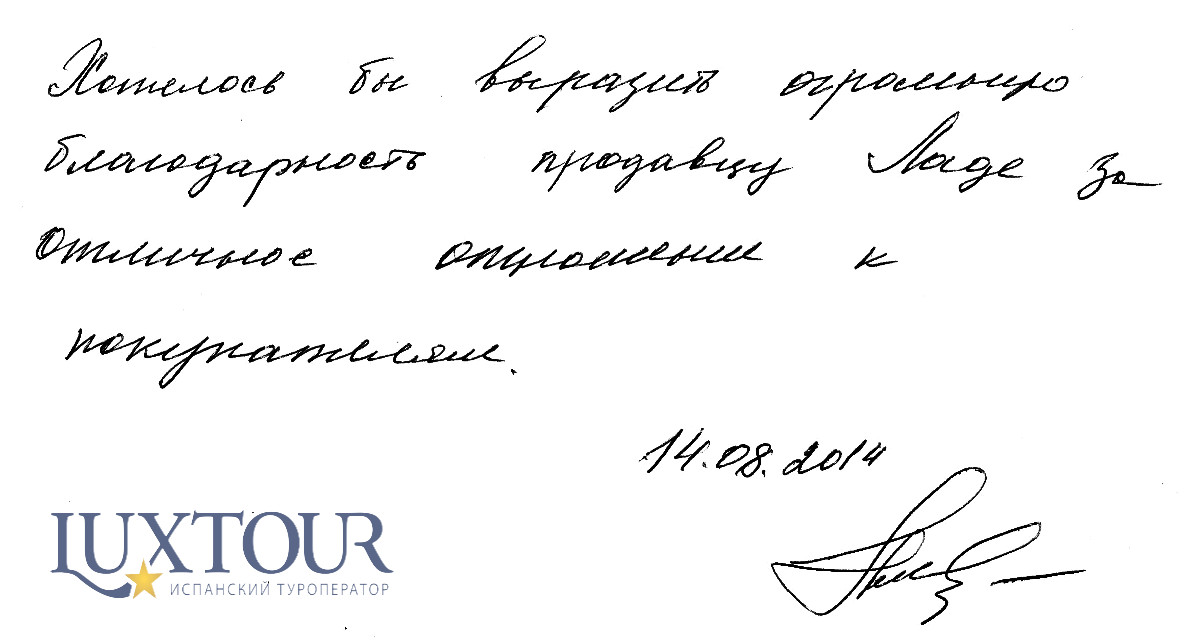 Хотелось бы выразить огромную
благодарность продавцу Ладе за
отличное отношение к
покупателям.
14.08.2014
LUXTOUR
ИСПАНСКИЙ ТУРОПЕРАТОР